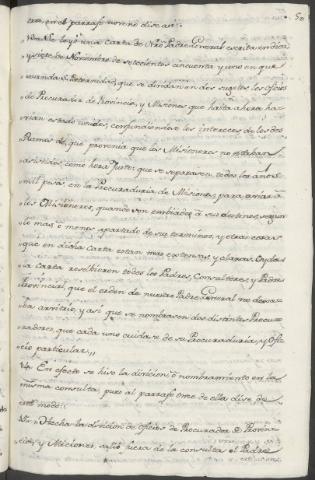 50
en el parrafo noveno dise asi
Se leyó una Carta de Nrô Padre General escrita en dies
y siete de Noviembre de setecientos cincuenta y uno en que
manda su Paternidad, que se dividan en dos sugetos los oficios
de Procurador de Provincia, y Misiones que hasta ahora ha-
vian estado unidos, confundiendose los intereses de los dos
Ramos de que provenia que los Misioneros no estaban
asistidos como hera Justo: que se separasen todos los años
mil pesos en la Procuraduria de Misiones, para aviar a
los Misioneros, quando son embiados à sus destinos, segun
lo mas o menos apartado de sus terminos, y otras cosas
que en dicha Carta estan mas extensas y claras. Oyda es-
ta carta resolvieron todos los Padres Consultores, y Padre
Provincial, que el orden de nuestro Padre General no dexa-
ba arvitrio, y asi que se nombrasen dos distintos Procu-
radores, que cada uno cuidase de su Procuraduria, y Ofi-
cio particular,,
En efecto se hiso la division ô nombramiento en la
misma consulta pues al parrafo onse de ella dise de
este modo:
Hecha la division de oficios de Procurador de Provin-
cia, y Misiones, salió fuera de la consulta el Padre